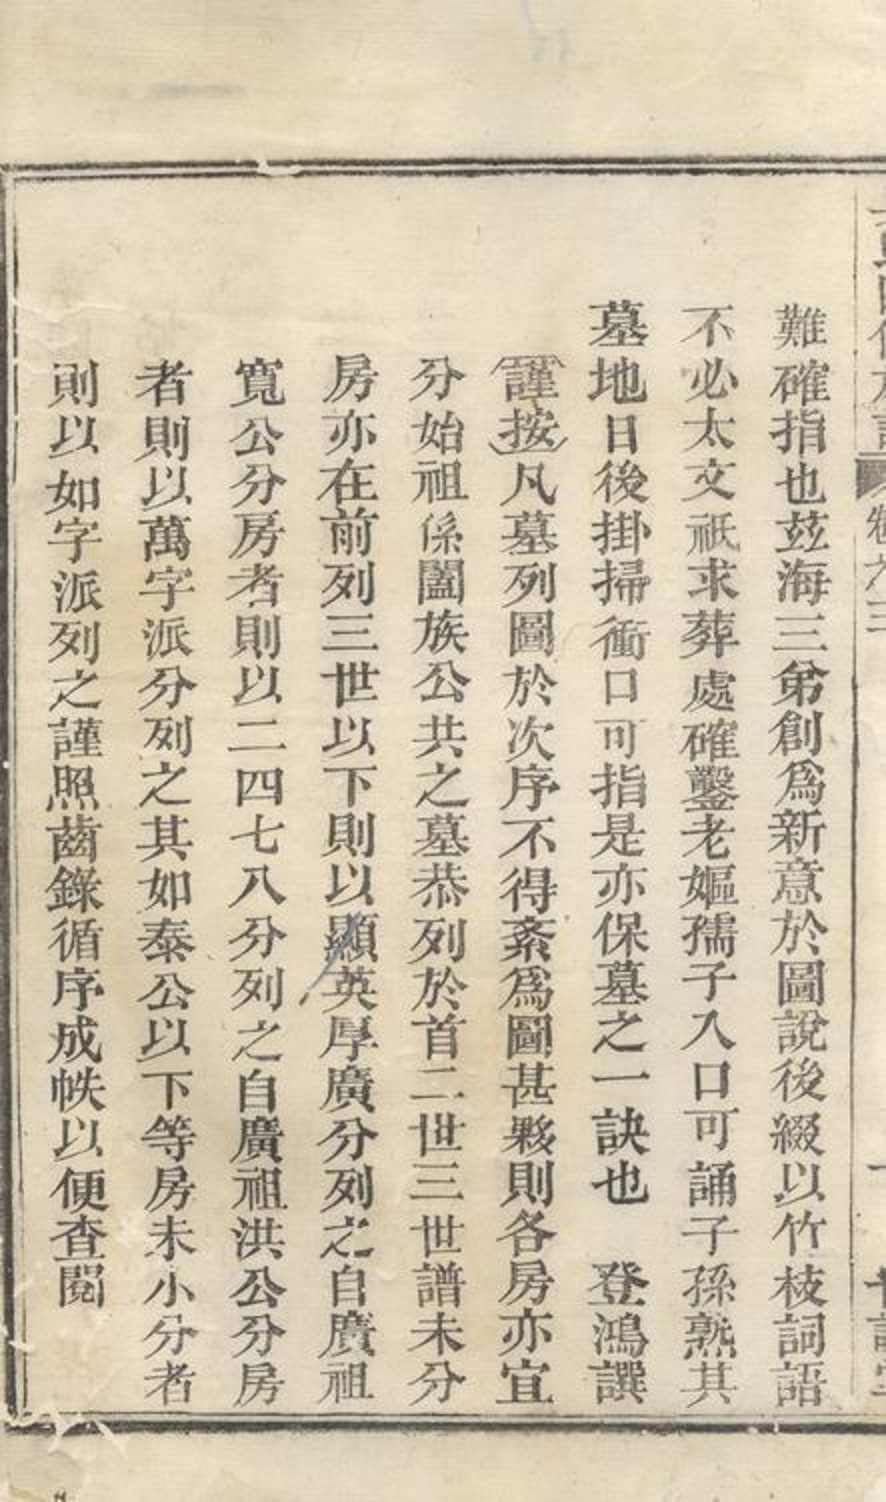 卷之三
難確指也玆海三弟創爲新意於圖說後綴以竹枝詞語
不必太文祇求葬處確鑿老嫗孺子入口可誦子孫熟其
墓地日後掛掃衝口可指是亦保墓之一訣也 登鴻譔
謹按凡墓列圖於次序不得紊爲圖甚夥則各房亦宜
分始祖係闔族公共之墓恭列於首二世三世譜未分
房亦在前列三世以下則以顯英厚廣分列之自廣祖
寬公分房者則以二四七八分列之自廣祖洪公分房
者則以萬字派分列之其如泰公以下等房未小分者
則以如字派列之謹照齒錄循序成帙以便查閱